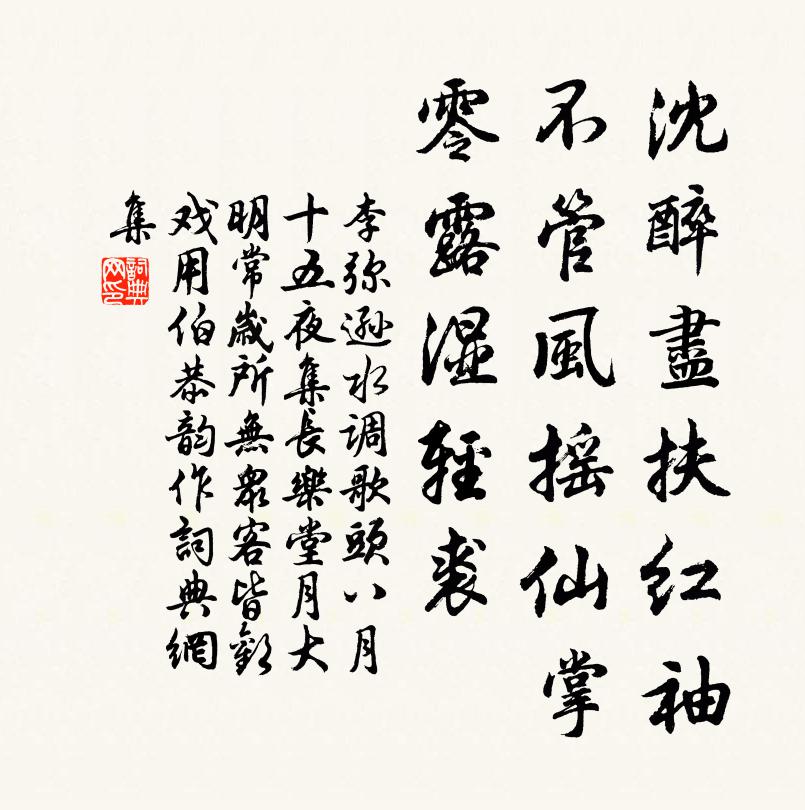 沈醉盡扶红袖
不管風摇仙掌
零露湿輕裘
李弥遜水调歌頭八月
十五夜集長樂堂月大
明常歲所無衆客皆歡
戏用伯恭韵作詞典網
集
詞典网印